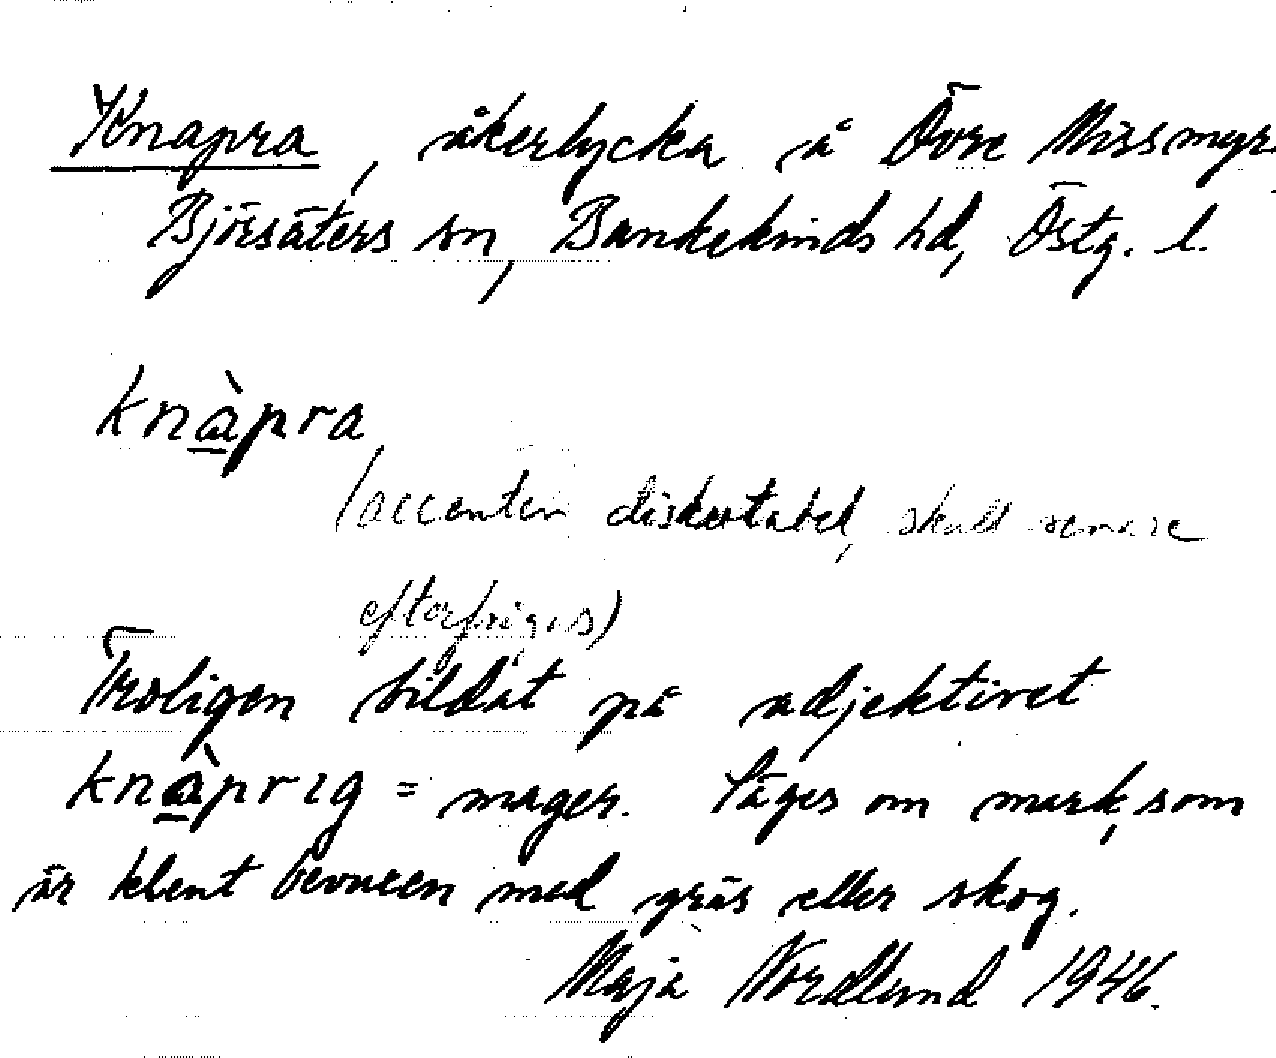 Knapra, åkerlycka å Övre Missmyr.
Björsäters sn, Bankekinds hd, Östg. l.
knàpra
(accenten diskutabel, skall senare
efterfrågas)
Troligen bildat på adjektivet
knàprig = mager. Säges om mark, som
är klent bevuxen med gräs eller skog.
Maja Nordlund 1946.